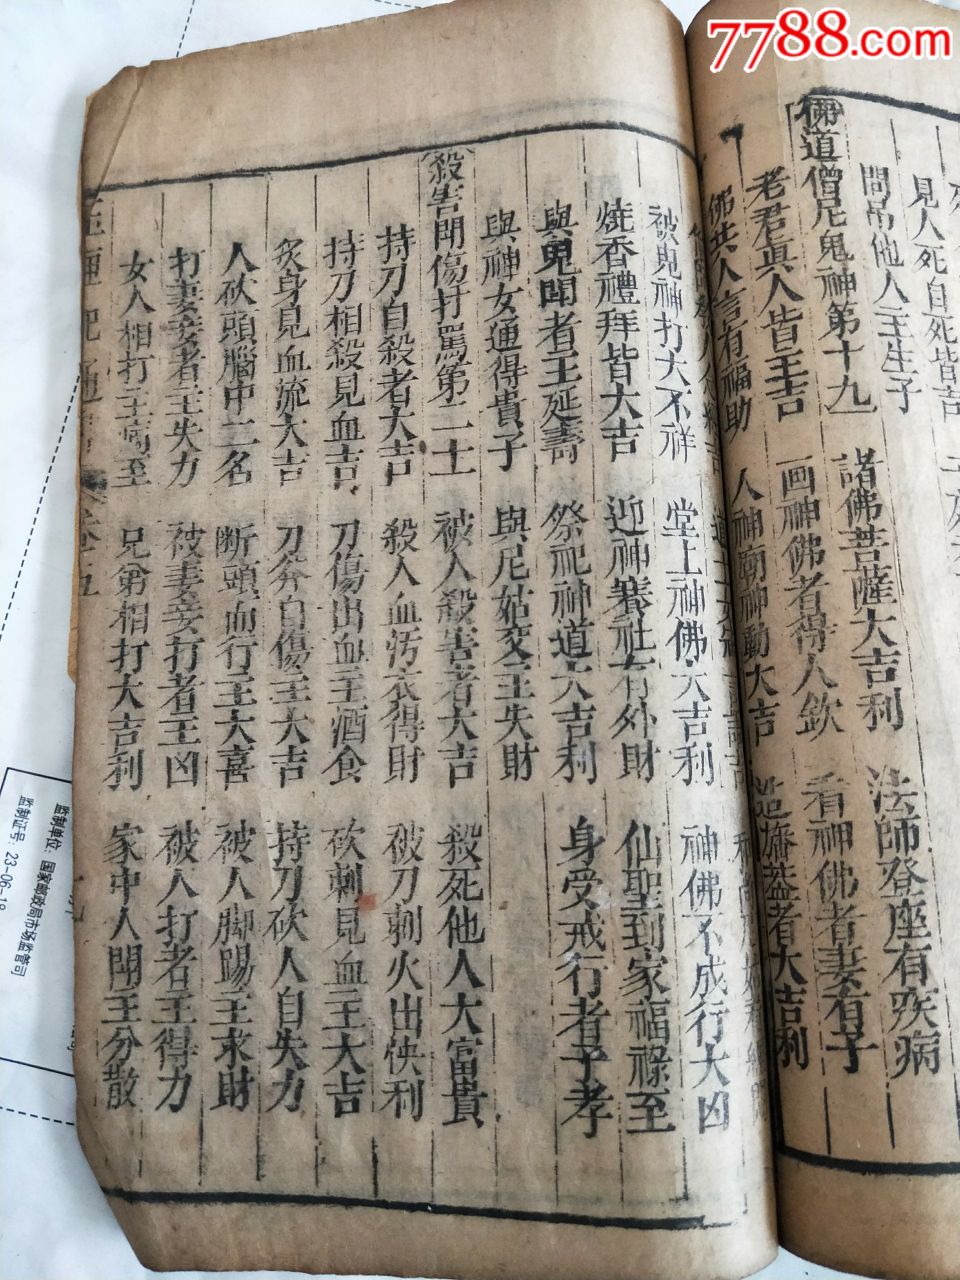 7788.com
見人死自死皆吉
問吊他人主生子
佛道僧尼鬼神第十九
諸佛菩薩大吉利
法師登座有疾病
老君真人皆主吉
画神佛者得人欽
看神佛者妻有子
佛共人言有福助
人神廟神動大吉
造旛蓋者大吉利
被鬼神打大不祥
堂上神佛大吉利
神佛不成行大凶
燒香禮拜皆大吉
迎神賽社有外財
仙聖到家福祿至
與鬼鬧者主延壽
祭祀神道大吉利
身受戒行者子孝
與神女通得貴子
與尼姑交主失財
殺害鬧傷打罵第二十
被人殺害者大吉
殺死他人大富貴
持刀自殺者大吉
殺人血汚衣得財
被刀刺火出快利
持刀相殺見血吉
刀傷出血主酒食
砍刺見血主大吉
炙身見血流大吉
刀斧自傷主大吉
持刀砍人自失力
人砍頭腦中二名
断頭血行主大喜
被人脚踢主求財
打妻妾者主失力
被妻妾打者主凶
被人打者主得力
女人相打主病至
兄弟相打大吉利
家中人鬧主分散
玉匣記通書 卷五
监制单位: 国家邮政局市场监管司
监制证号: 23-06-18